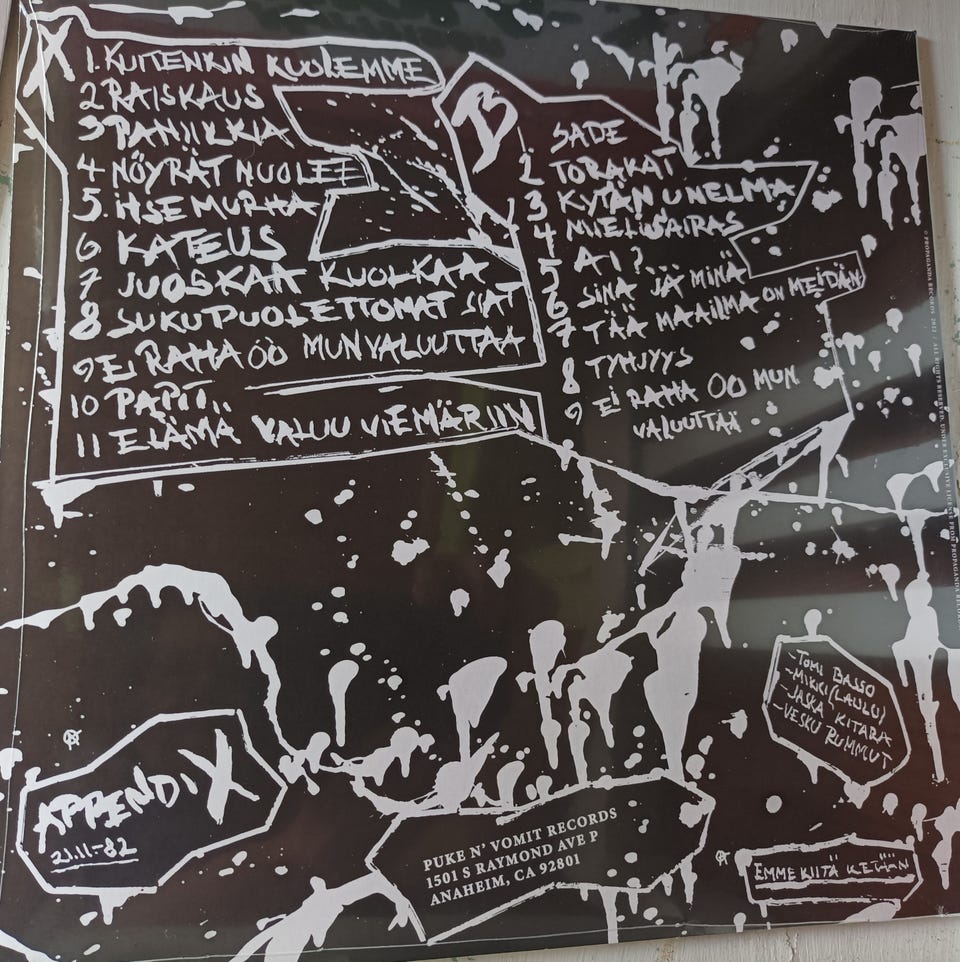 X
1. KUITENKIN KUOLEMME
2 RAISKAUS
3 PANIIKKIA
4 NÖYRÄT NUOLEE
5. ITSEMURHA
6 KATEUS
7 JUOSKAA KUOLKAA
8 SUKUPUOLETTOMAT SIAT
9 EI RAHA OO MUN VALUUTTAA
10 PAPIT
11 ELÄMÄ VALUU VIEMÄRIIN
B
SADE
2 TORAKAT
3 KYTÄN UNELMA
4 MIELISAIRAS
5 AI?...
6 SINÄ JA MINÄ
7 TÄÄ MAAILMA ON MEIDÄN
8 TYHJYYS
9 EI RAHA OO MUN
VALUUTTAA
© PROPAGANDA RECORDS 2021 / ALL RIGHTS RESERVED. UNDER EXCLUSIVE LICENSE FROM PROPAGANDA RECORDS
-TOMI BASSO
-MIKKI (LAULU)
-JASKA KITARA
-VESKU RUMMUT
APPENDIX
21.11-82
PUKE N' VOMIT RECORDS
1501 S RAYMOND AVE P
ANAHEIM, CA 92801
EMME KIITÄ KETÄÄN